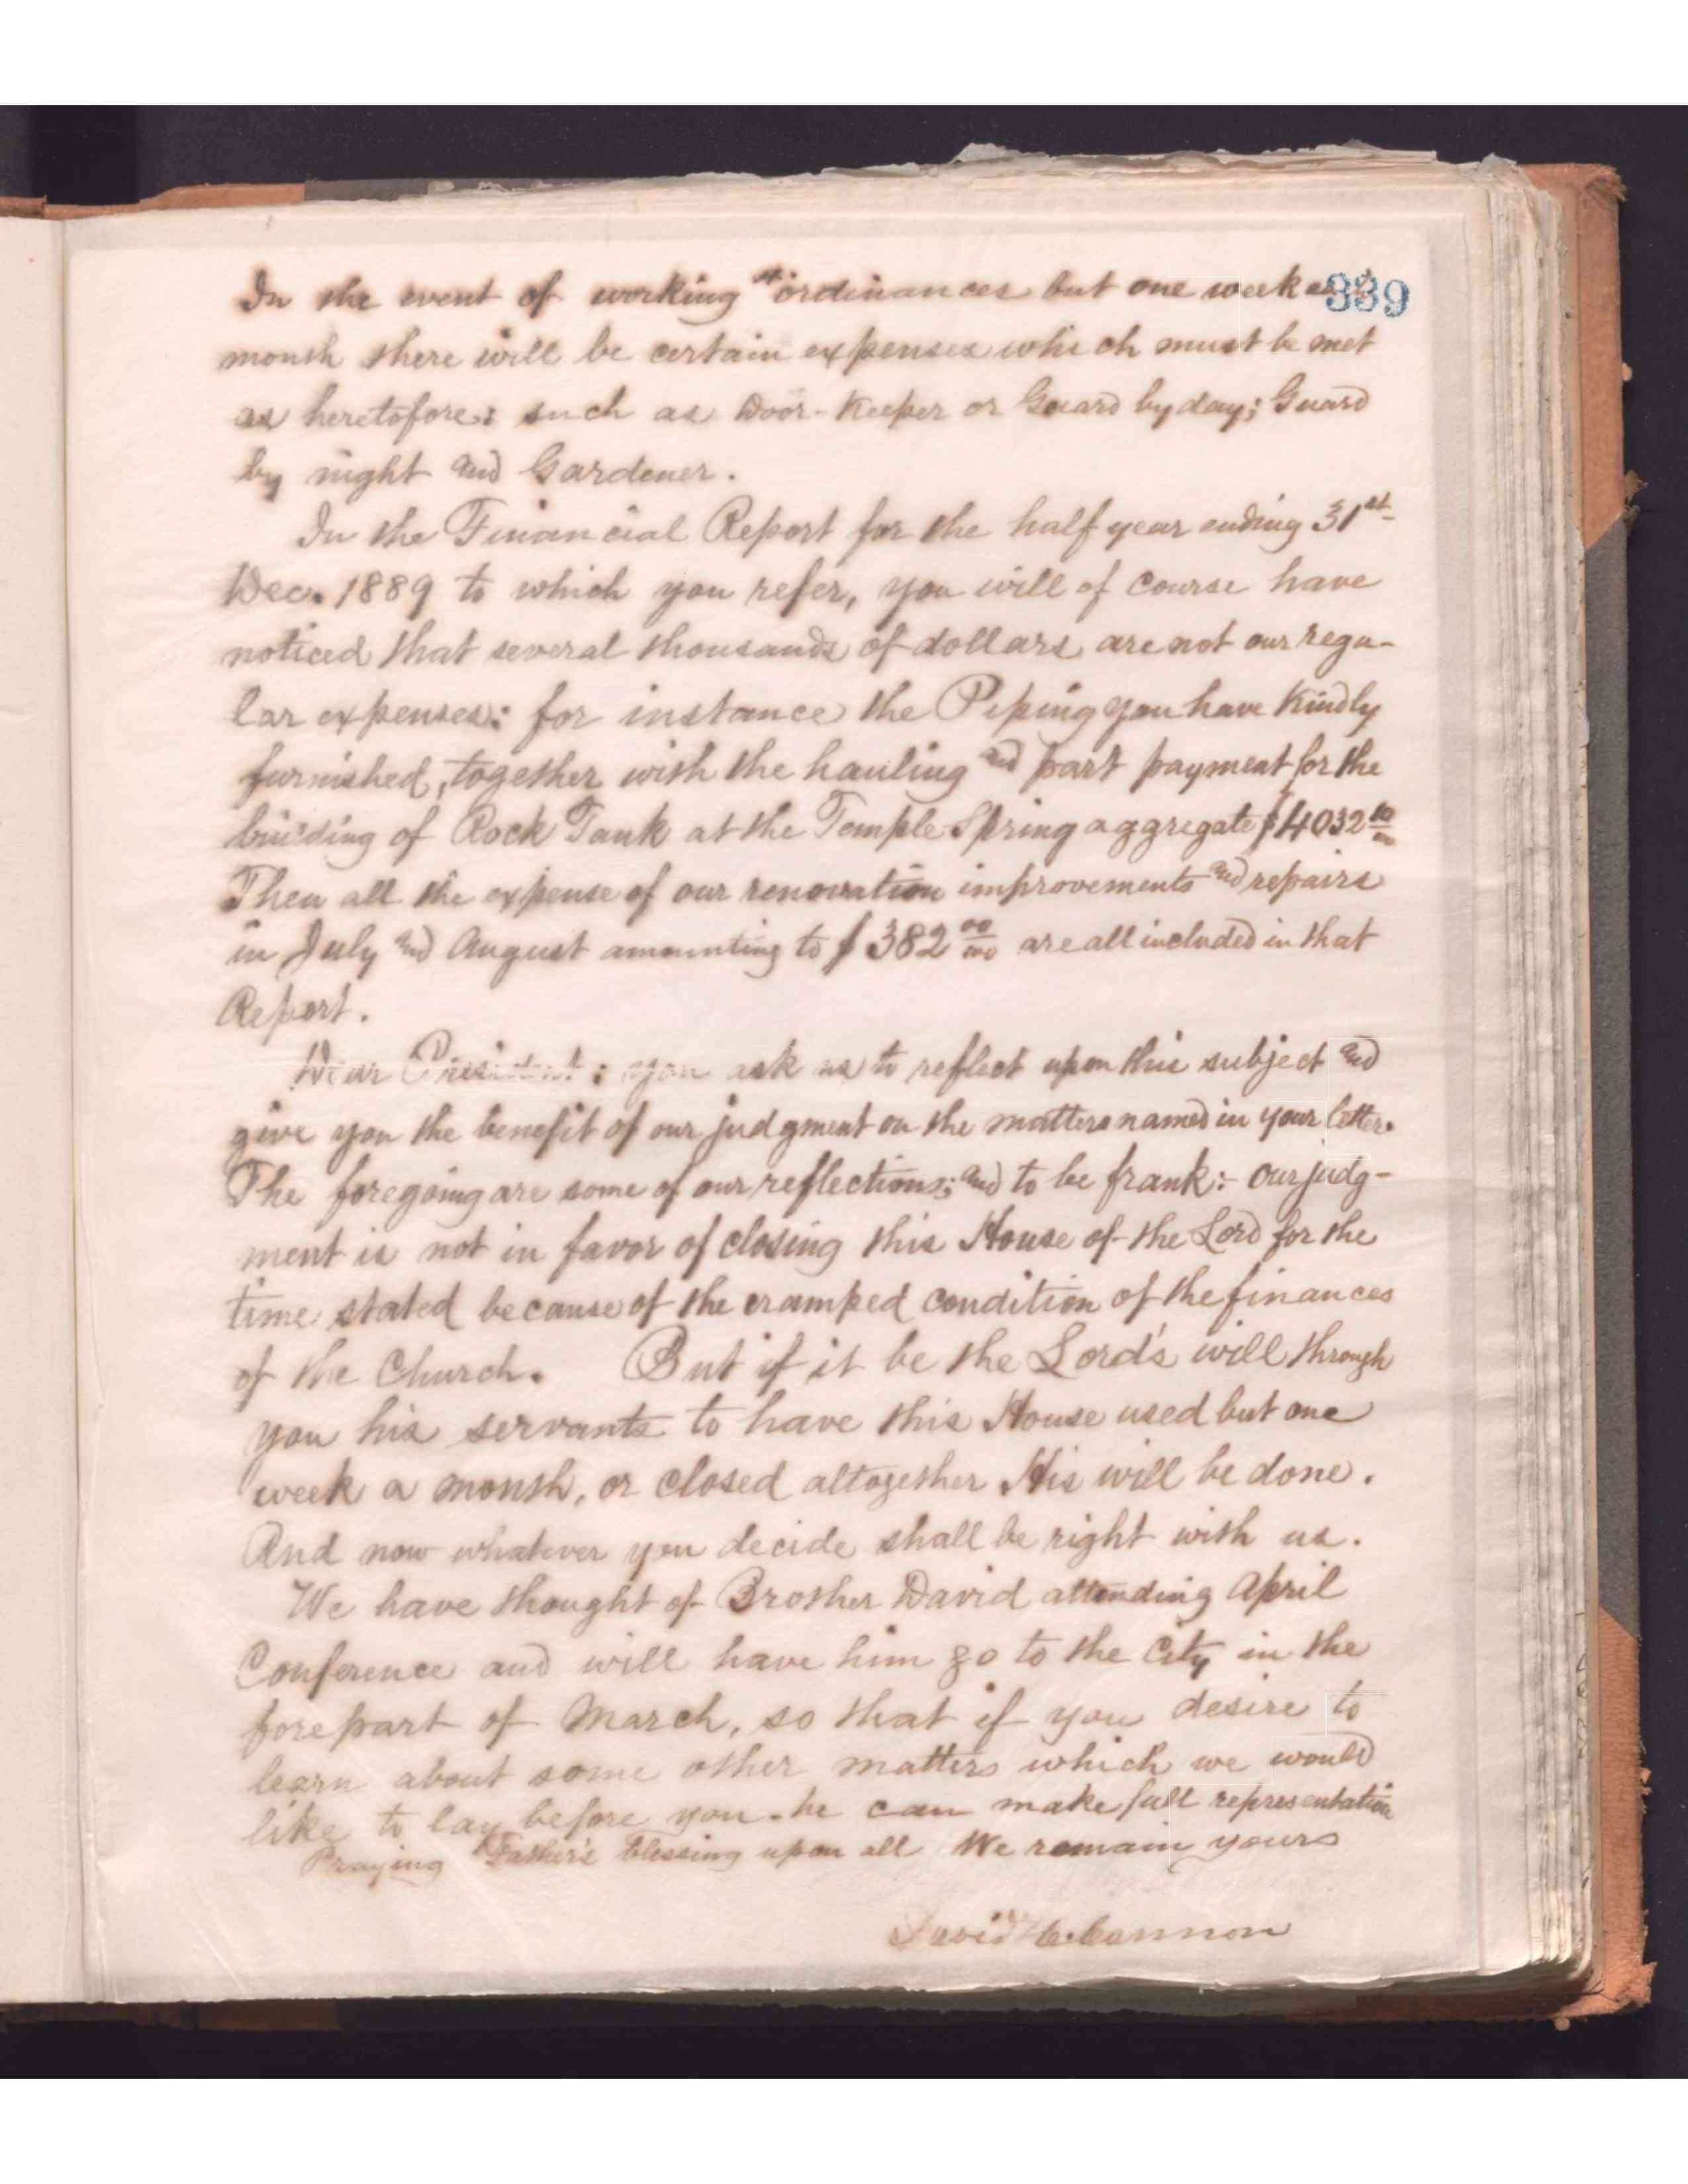 339
In the event of working ordinances but one week
month there will be certain expenses which must be met
as heretofore: such as Door-Keeper or Guard by day; Guard
by night and Gardener.
In the Financial Report for the half year ending 31st
Dec. 1889 to which you refer, you will of course have
noticed that several thousands of dollars are not our regu-
lar expenses: for instance the Piping you have Kindly
furnished, together with the hauling and part payment for the
building of Rock Tank at the Temple Spring aggregate $4032 10/00
Then all the expense of our renovation improvements and repairs
in July and August amounting to $382 00/100 are all included in that
Report.
Dear President: you ask us to reflect upon this subject and
give you the benefit of our judgment on the matters named in your letter.
The foregoing are some of our reflections; and to be frank:- Our judg-
ment is not in favor of closing this House of the Lord for the
time stated because of the cramped condition of the finances
of the Church. But if it be the Lord's will through
you his servants to have this House used but one
week a month, or closed altogether His will be done.
And now whatever you decide shall be right with us.
We have thought of Brother David attending April
Conference and will have him go to the City in the
forepart of March, so that if you desire to
learn about some other matters which we would
like to lay before you - he can make full representation
Praying Father's blessing upon all We remain yours
David H. Cannon